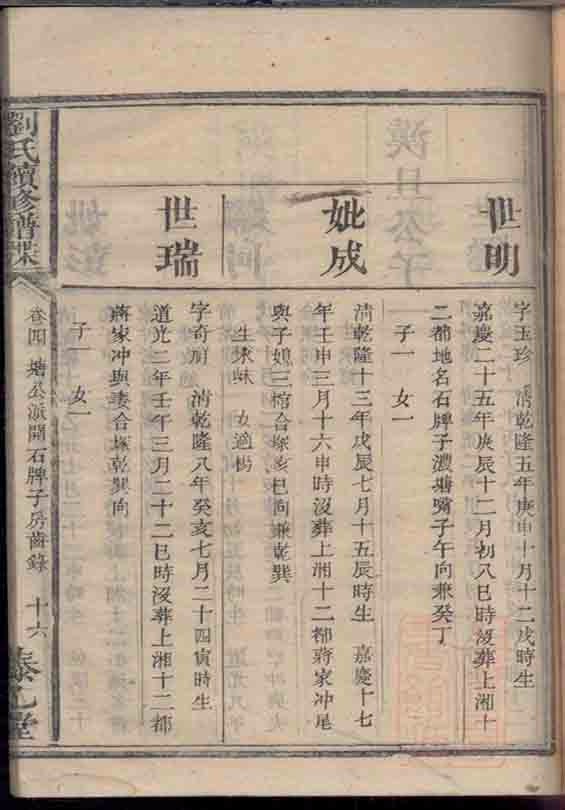 世明
字玉珍 清乾隆五年庚申十月十二戌時生
嘉慶二十五年庚辰十二月初八巳時沒葬上湘十
二都地名石牌子濃塘嘴子午向兼癸丁
子一 女一
妣成
清乾隆十三年戊辰七月十五辰時生 嘉慶十七
年壬申三月十六申時沒葬上湘十二都蔣家冲尾
與子媳三棺合塚亥巳向兼乾巽
生 女適楊
世瑞
字奇 清乾隆八年癸亥七月二十四寅時生
道光二年壬午三月二十二巳時沒葬上湘十二都
蔣家冲與妻合塚乾巽向
子一 女一
劉氏續修譜牒
卷四 塘公派開石牌子房齒錄 十六
堂